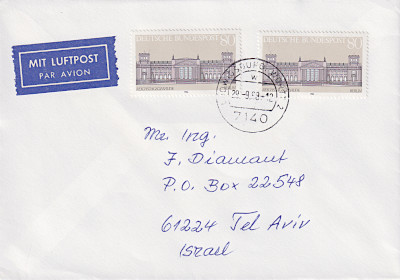 MIT LUFTPOST
PAR AVION
DEUTSCHE BUNDESPOST 80
DEUTSCHE BUNDESPOST 80
BERLIN
BERLIN
LUDWIGSBURG
7140
Me. Ing.
F. Diamant
P.O. Box 22548
61224 Tel Aviv
Israel